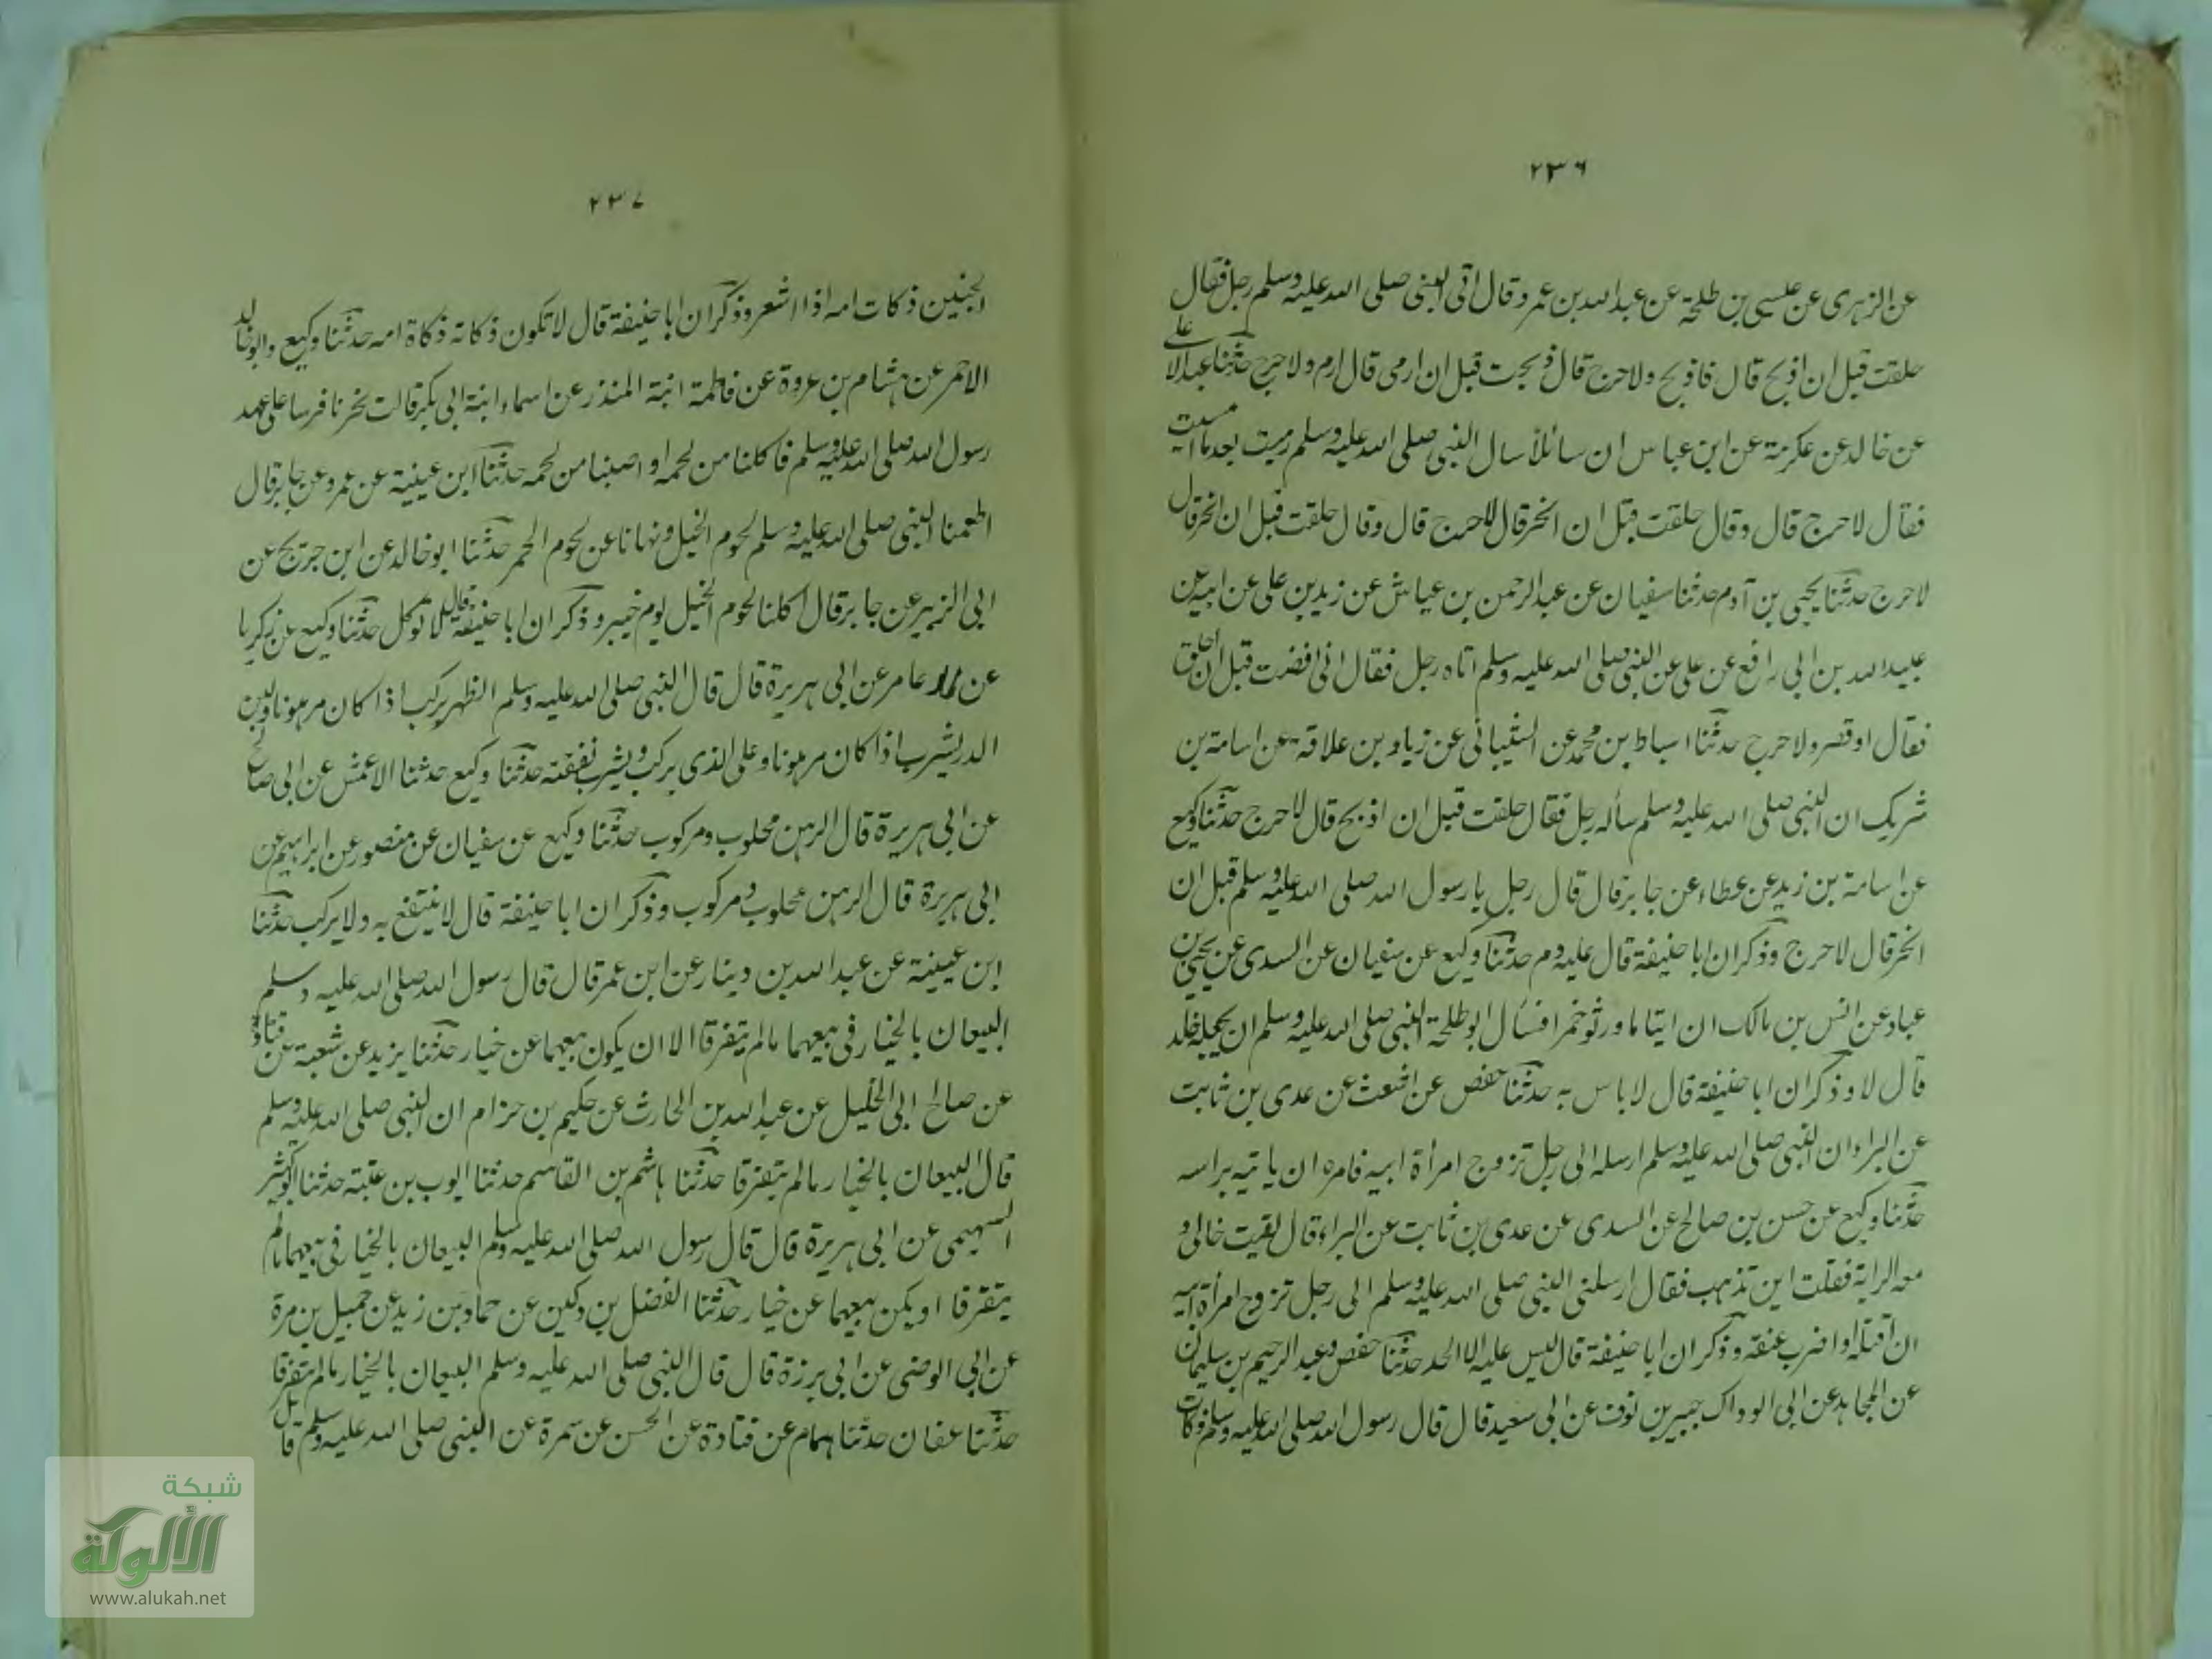 ٢٣٦
عن الزهرى عن عيسى بن طلحة عن عبد الله بن عمرو قال اتى النبى صلى الله عليه وسلم رجل فقال
حلقت قبل ان اذبح قال فاذبح ولا حرج قال ذبحت قبل ان ارمى قال ارم ولا حرج حدثنا عبد الاعلى
عن خالد عن عكرمة عن ابن عباس ان سائلا سال النبى صلى الله عليه وسلم رميت بعد ما امسيت
فقال لا حرج قال وقال حلقت قبل ان انحر قال لا حرج قال وقال حلقت قبل ان انحر قال
لا حرج حدثنا يحيى بن آدم حدثنا سفيان عن عبد الرحمن بن عياش عن زيد بن على عن ابيه عن
عبيد الله بن ابى رافع عن على عن النبى صلى الله عليه وسلم اتاه رجل فقال انى افضت قبل ان احلق
فقال او قصر ولا حرج حدثنا اسباط بن محمد عن الشيبانى عن زياد بن علاقة عن اسامة بن
شريك ان النبى صلى الله عليه وسلم سأله رجل فقال حلقت قبل ان اذبح قال لا حرج حدثنا وكيع
عن اسامة بن زيد عن عطاء عن جابر قال قال رجل يا رسول الله صلى الله عليه وسلم قبل ان
انحر قال لا حرج وذكر ان ابا حنيفة قال عليه دم حدثنا وكيع عن سفيان عن السدى عن يحيى بن
عباد عن انس بن مالك ان ايتاما ورثو خمرا فسأل ابو طلحة النبى صلى الله عليه وسلم ان يجعله خلد
قال لا وذكر ان ابا حنيفة قال لا باس به حدثنا حفص عن اشعث عن عدى بن ثابت
عن البراء ان النبى صلى الله عليه وسلم ارسله الى رجل تزوج امرأة ابيه فامره ان ياتيه براسه
حدثنا وكيع عن حسن بن صالح عن السدى عن عدى بن ثابت عن البراء قال لقيت خالى و
معه الراية فقلت اين تذهب فقال ارسلنى النبى صلى الله عليه وسلم الى رجل تزوج امرأة ابيه
ان اقتله او اضرب عنقه وذكر ان ابا حنيفة قال ليس عليه الا الحد حدثنا حفص وعبد الرحيم بن سليمان
عن المجاهد عن ابى الوداك جبير بن نوف عن ابى سعيد قال قال رسول الله صلى الله عليه وسلم ذكات
٢٣٧
الجنين ذكات امه اذا اشعر وذكر ان ابا حنيفة قال لا تكون ذكاته ذكاة امه حدثنا وكيع وابو خالد
الاحمر عن هشام بن عروة عن فاطمة ابنة المنذر عن اسماء ابنة ابى بكر قالت نحرنا فرسا على عهد
رسول الله صلى الله عليه وسلم فاكلنا من لحمه او اصبنا من لحمه حدثنا ابن عيينة عن عمرو عن جابر قال
اطعمنا النبى صلى الله عليه وسلم لحوم الخيل ونهانا عن لحوم الحمر حدثنا ابو خالد عن ابن جريج عن
ابى الزبير عن جابر قال اكلنا لحوم الخيل يوم خيبر وذكر ان ابا حنيفة قال لا توكل حدثنا وكيع عن زكريا
عن عامر عن ابى هريرة قال قال النبى صلى الله عليه وسلم الظهر يركب اذا كان مرهونا ولبن
الدر يشرب اذا كان مرهونا وعلى الذى يركب ويشرب نفقته حدثنا وكيع حدثنا الاعمش عن ابى صالح
عن ابى هريرة قال الرهن محلوب ومركوب حدثنا وكيع عن سفيان عن منصور عن ابراهيم عن
ابى هريرة قال الرهن محلوب ومركوب وذكر ان ابا حنيفة قال لا ينتفع به ولا يركب حدثنا
ابن عيينة عن عبد الله بن دينار عن ابن عمر قال قال رسول الله صلى الله عليه وسلم
البيعان بالخيار فى بيعهما ما لم يتفرقا الا ان يكون بيعهما عن خيار حدثنا يزيد عن شعبة عن قتادة
عن صالح ابى الخليل عن عبد الله بن الحارث عن حكيم بن حزام ان النبى صلى الله عليه وسلم
قال البيعان بالخيار ما لم يتفرقا حدثنا هاشم بن القاسم حدثنا ايوب بن عتبة حدثنا ابو كثير
السهيمى عن ابى هريرة قال قال رسول الله صلى الله عليه وسلم البيعان بالخيار فى بيعهما ما لم
يتفرقا او يكن بيعهما عن خيار حدثنا الفضل بن دكين عن حماد بن زيد عن جميل بن مرة
عن ابى الوضى عن ابى برزة قال قال النبى صلى الله عليه وسلم البيعان بالخيار ما لم يتفرقا
حدثنا عفان حدثنا همام عن قتادة عن الحسن عن سمرة عن النبى صلى الله عليه وسلم قال
شبكة
الألوكة
www.alukah.net